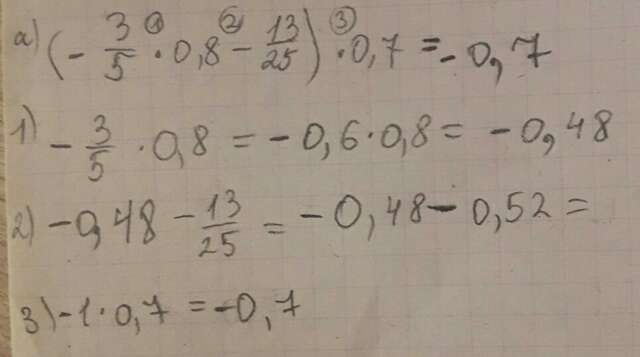 а) (- 3/5 · 0,8 - 13/25) · 0,7 = -0,7
① ② ③
1) - 3/5 · 0,8 = -0,6 · 0,8 = -0,48
2) -0,48 - 13/25 = -0,48 - 0,52 =
3) -1 · 0,7 = -0,7